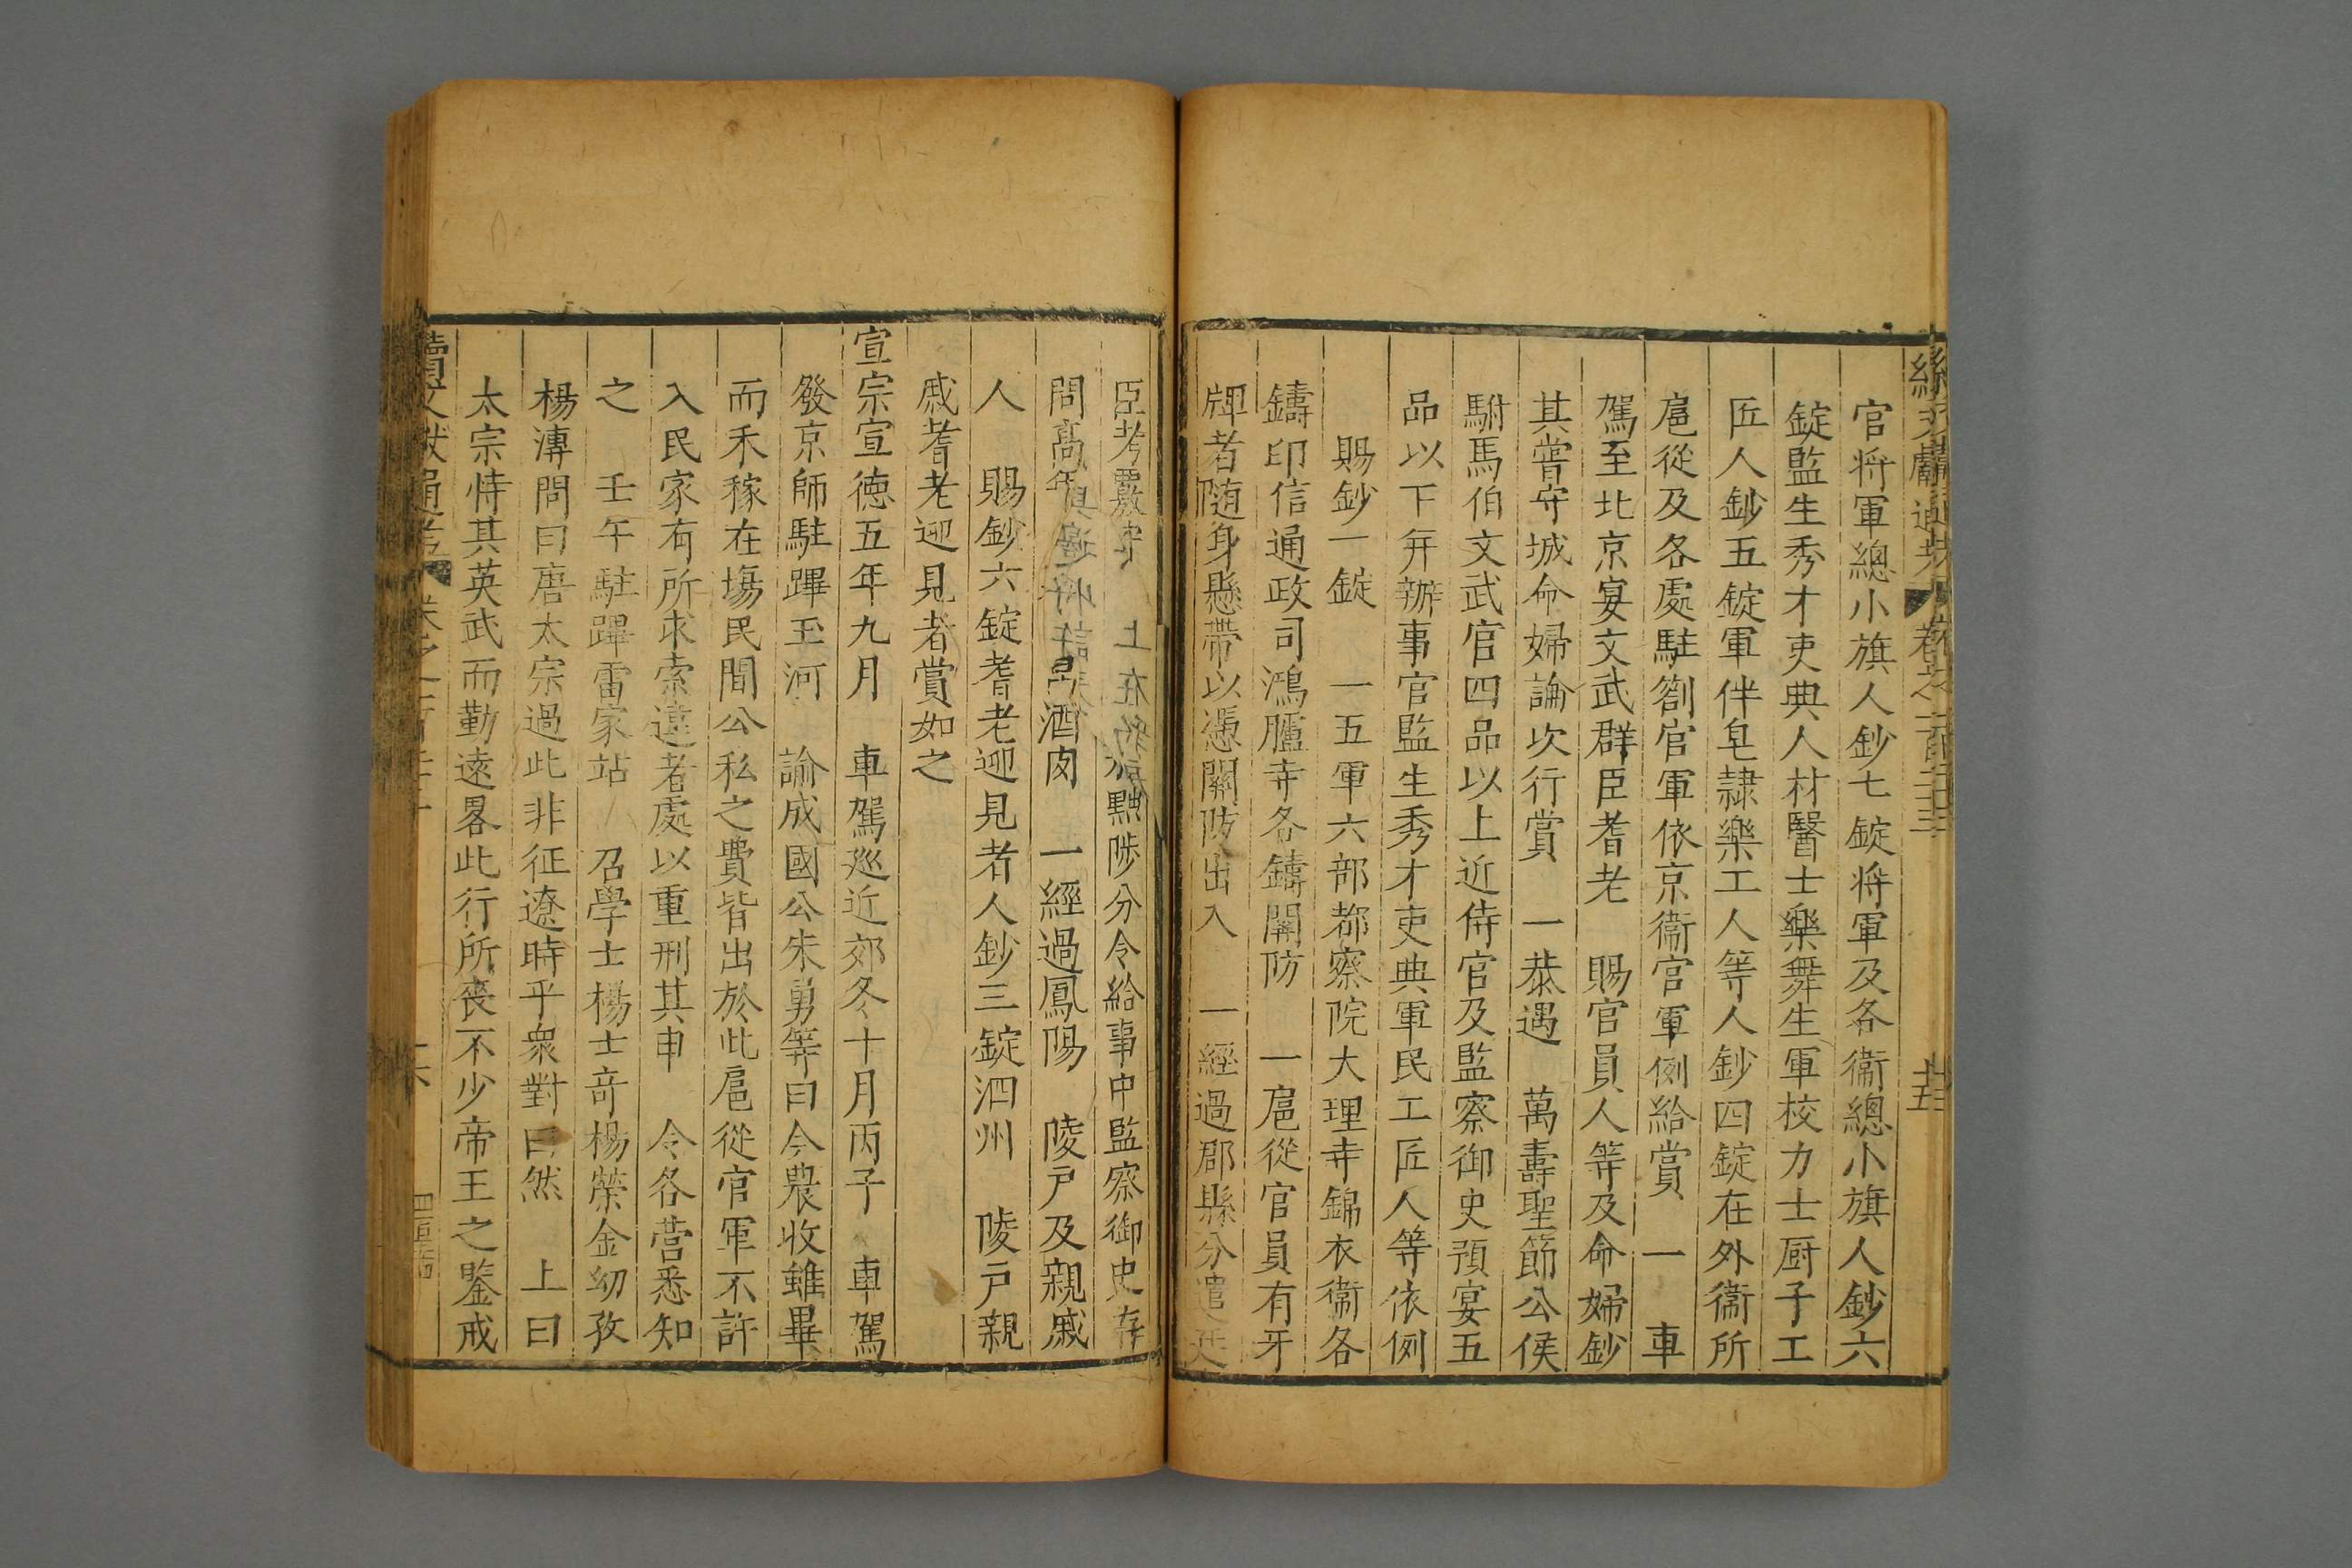 續文獻通考 卷之一百二十三 十五
官將軍總小旗人鈔七錠將軍及各衞總小旗人鈔六
錠監生秀才吏典人材醫士樂舞生軍校力士厨子工
匠人鈔五錠軍伴皂隸樂工人等人鈔四錠在外衞所
扈從及各處駐劄官軍依京衞官軍例給賞 一 車
駕至北京宴文武群臣耆老 賜官員人等及命婦鈔
其嘗守城命婦論次行賞 一恭遇 萬壽聖節公侯
駙馬伯文武官四品以上近侍官及監察御史預宴五
品以下并辦事官監生秀才吏典軍民工匠人等依例
賜鈔一錠 一五軍六部都察院大理寺錦衣衞各
鑄印信通政司鴻臚寺各鑄關防 一扈從官員有牙
牌者随身懸帶以憑關防出入 一經過郡縣分遣廷
臣考覈守 上在 黜陟分令給事中監察御史存
問高年 酒肉 一經過鳳陽 陵户及親戚
人 賜鈔六錠耆老迎見者人鈔三錠泗州 陵户親
戚耆老迎見者賞如之
宣宗宣德五年九月 車駕廵近郊冬十月丙子 車駕
發京師駐蹕玉河 諭成國公朱勇等曰今農收雖畢
而禾稼在塲民間公私之費皆出於此扈從官軍不許
入民家有所求索違者處以重刑其申 令各營悉知
之 壬午駐蹕雷家站 召學士楊士竒楊榮金幼孜
楊溥問曰唐太宗過此非征遼時乎衆對曰然 上曰
太宗恃其英武而勤遠畧此行所喪不少帝王之鑒戒
續文獻通考 卷之一百二十三 十六